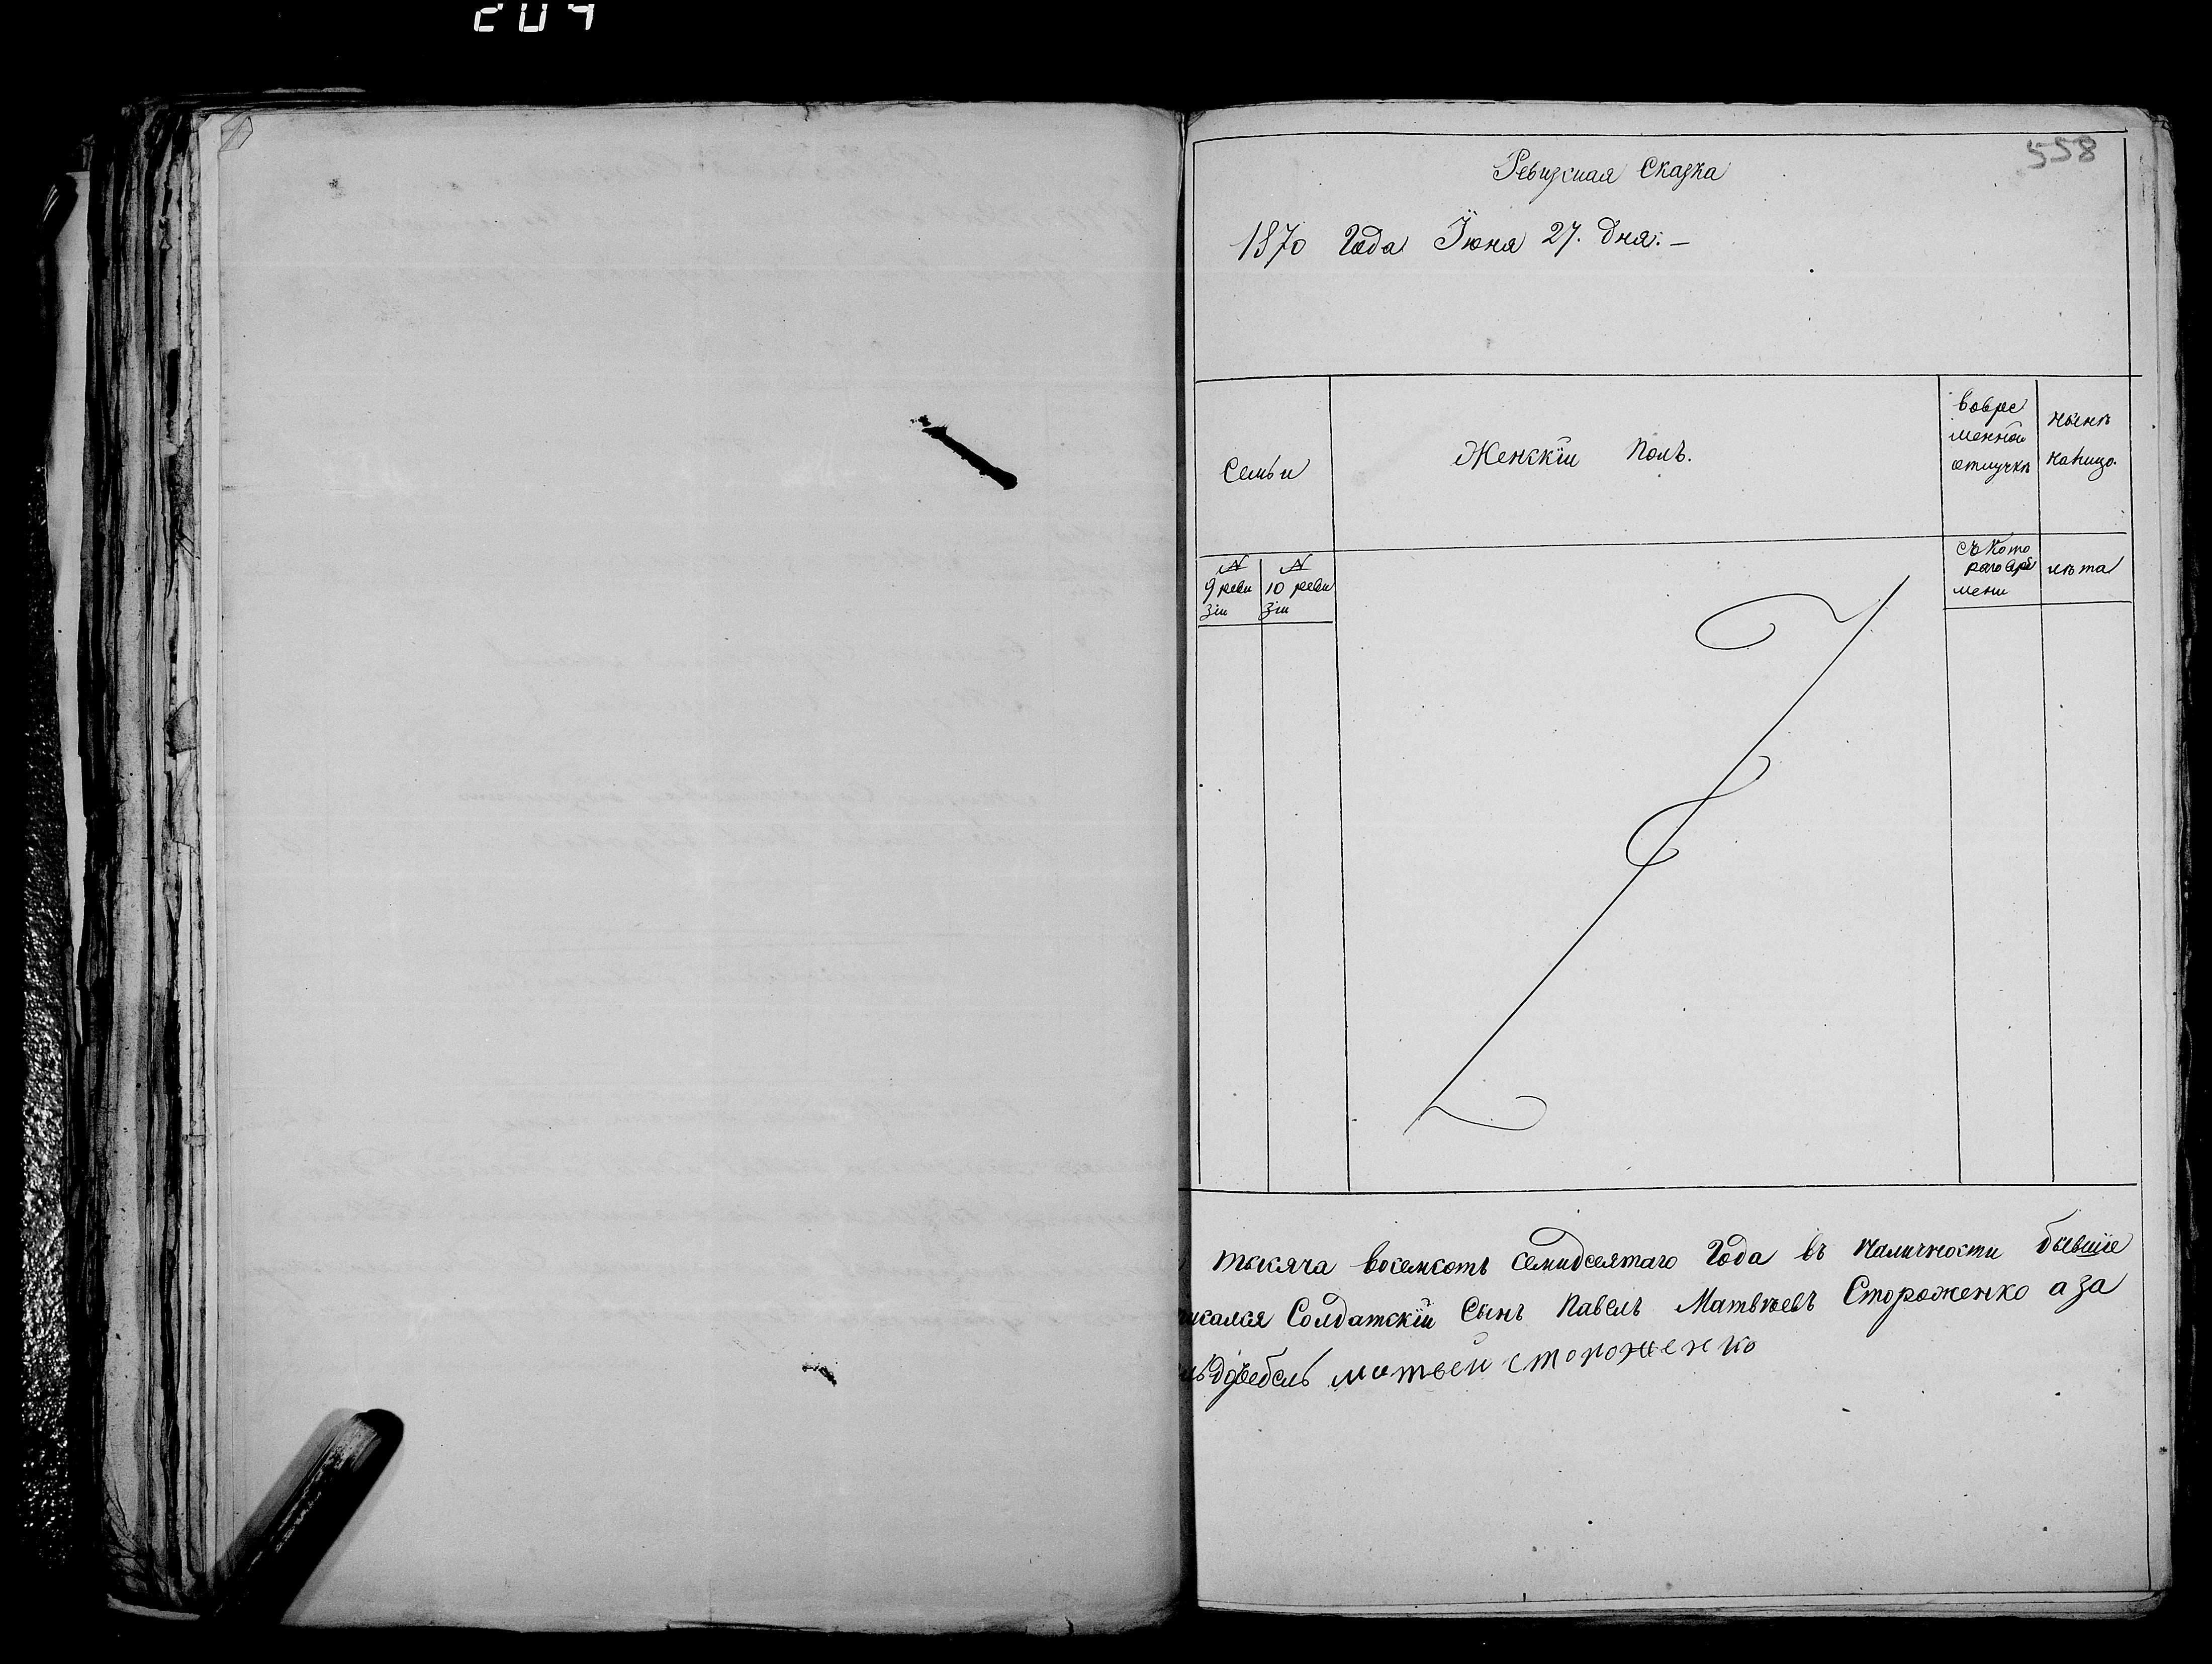 204
558
Ревизская Сказка
1870 Года Їюня 27. дня:—
Семьи
Женскїй Полъ.
вовре
менной
отлучкѣ
нынѣ
налицо.
№
9 реви
зіи
№
10 реви
зіи
съ кото
раго вре
мени
лѣта
тысяча восемсотъ семидсятаго Года въ наличности бывшіе
исался Солдатскїй Сынъ Павелъ Матвѣевъ Стороженко а за
матвей стороженко